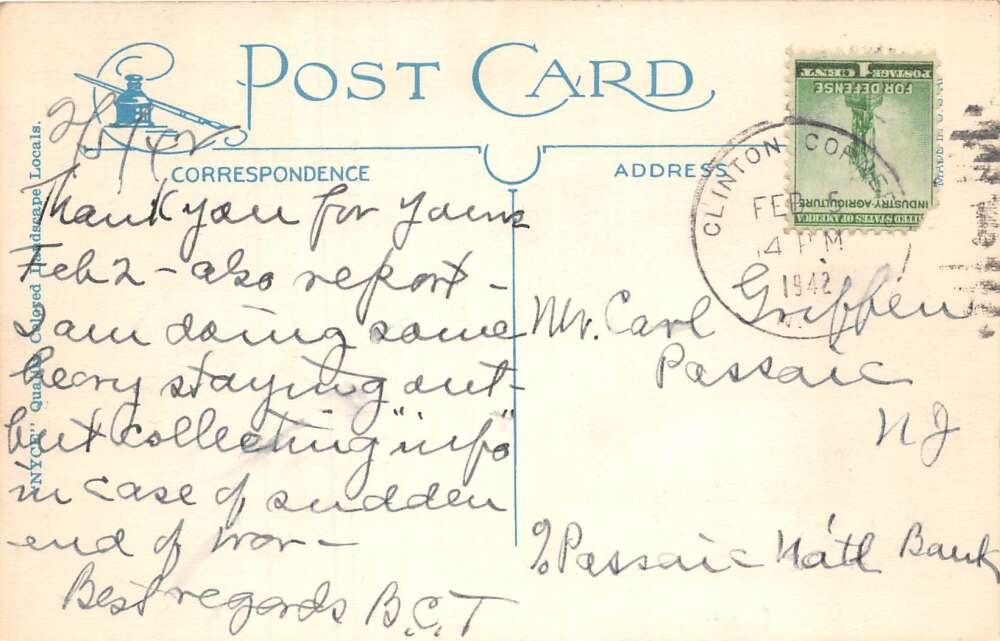 POST CARD
2/5/42
CORRESPONDENCE
Thank you for yours
Feb 2 - also report -
I am doing some
heavy staying out -
but collecting "info"
in case of sudden
end of war -
Best regards B.C.T
"NYCE" Quality Colored Landscape Locals.
ADDRESS
UNITED STATES OF AMERICA
INDUSTRY-AGRICULTURE
FOR DEFENSE
1 CENT
POSTAGE
MADE IN U.S.A.
CLINTON CORNERS
FEB 5
4 PM
1942
N.
Mr. Carl Griffen
Passaic
NJ
% Passaic Nat'l Bank